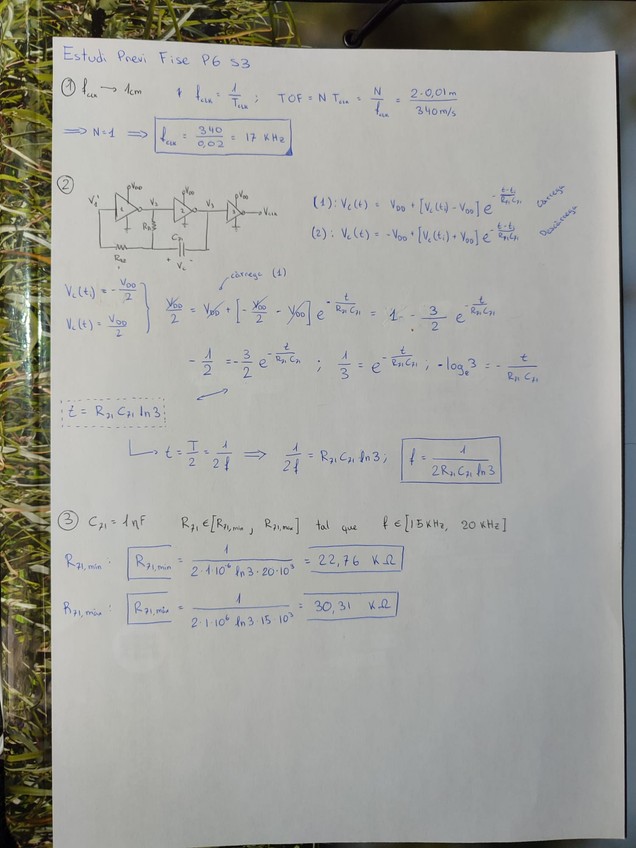 Estudi Previ Fise P6 S3
① f_CLK → 1cm * f_CLK = 1/T_CLK ; TOF = N T_CLK = N/f_CLK = 2·0,01m / 340m/s
⇒ N=1 ⇒ f_CLK = 340/0,02 = 17 KHz
②
V1 VDD V2 VDD V3 VDD VCLK
R71 C71
+ Vc -
(1): Vc(t) = VDD + [Vc(ti) - VDD] e^(-(t-ti)/(R71 C71)) Càrrega
(2): Vc(t) = -VDD + [Vc(ti) + VDD] e^(-(t-ti)/(R71 C71)) Descàrrega
càrrega (1)
Vc(ti) = -VDD/2
Vc(t) = VDD/2
VDD/2 = VDD + [-VDD/2 - VDD] e^(-t/(R71 C71)) = 1 - 3/2 e^(-t/(R71 C71))
-1/2 = -3/2 e^(-t/(R71 C71)) ; 1/3 = e^(-t/(R71 C71)) ; -log_e 3 = -t/(R71 C71)
t = R71 C71 ln3
t = T/2 = 1/2f ⇒ 1/2f = R71 C71 ln3 ; f = 1/(2R71 C71 ln3)
③ C71 = 1nF R71 ∈ [R71,min , R71,max] tal que f ∈ [15KHz, 20KHz]
R71,min : R71,min = 1/(2·1·10^6 ln3·20·10^3) = 22,76 KΩ
R71,màx : R71,màx = 1/(2·1·10^6 ln3·15·10^3) = 30,31 KΩ